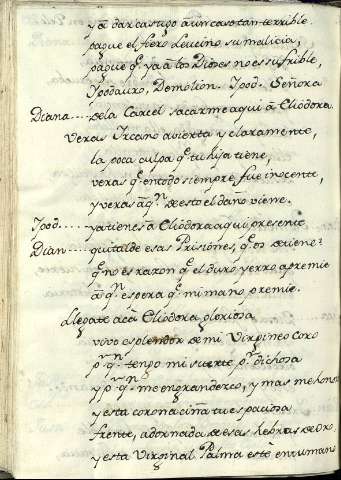 y a dar castigo a un caso tan terrible.
pague el fiero Leucino su malicia,
pague q̃ ya a los Dioses no es sufrible,
Ipodauro, Demolion. Ipod. Señora
Diana.... de la Carcel sacarme aqui a Cliodora.
Veras Ircano avierta y claramente,
la poca culpa q̃ tu hija tiene,
veras q̃ en todo siempre fue inocente,
y veras a q.ⁿ de esto el daño viene.
Ipod..... ya tienes a Cliodora aqui presente
Dian..... quitalde esas Prisiones, q̃ os detiene?
q̃ no es razon q̃ el duro yerro apremie
a q.ⁿ espera q̃ mi mano premie.
Llegate acà Cliodora gloriosa
vivo esplendor de mi Virgineo coro
p.ʳ q.ⁿ tengo mi suerte p.ʳ dichosa
y p.ʳ q.ⁿ me engrandezco, y mas me honoro
y esta corona ciña tu espaciosa
frente, adornada de esas hebras de oro
y esta Virginal Palma este en tu mano